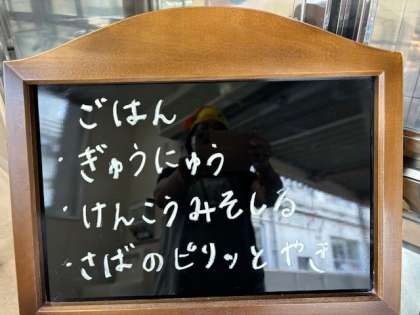 ごはん
・ぎゅうにゅう
・けんこうみそしる
・さばのピリッとやき